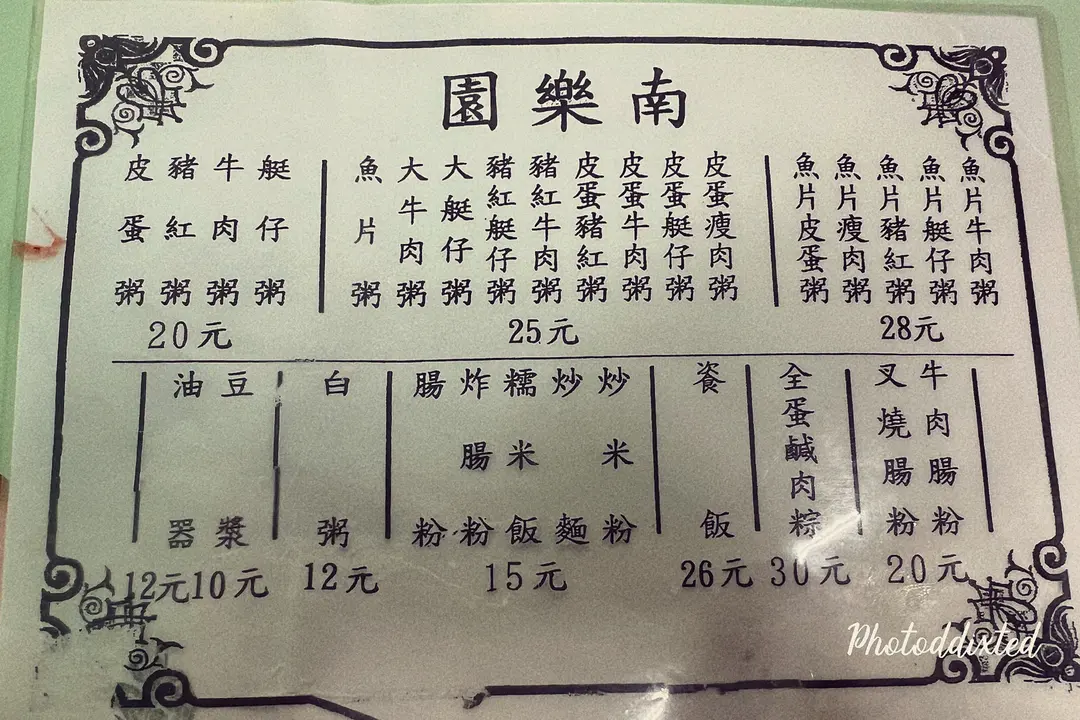 南樂園
魚片牛肉粥
魚片艇仔粥
魚片豬紅粥
魚片瘦肉粥
魚片皮蛋粥
28元
皮蛋瘦肉粥
皮蛋艇仔粥
皮蛋牛肉粥
皮蛋豬紅粥
豬紅牛肉粥
豬紅艇仔粥
大艇仔粥
大牛肉粥
魚片粥
25元
艇仔粥
牛肉粥
豬紅粥
皮蛋粥
20元
牛肉腸粉
叉燒腸粉
20元
全蛋鹹肉粽
30元
餈飯
26元
炒米粉
炒麵
糯米飯
炸腸粉
腸粉
15元
白粥
12元
豆漿
10元
油器
12元
Photoddixted